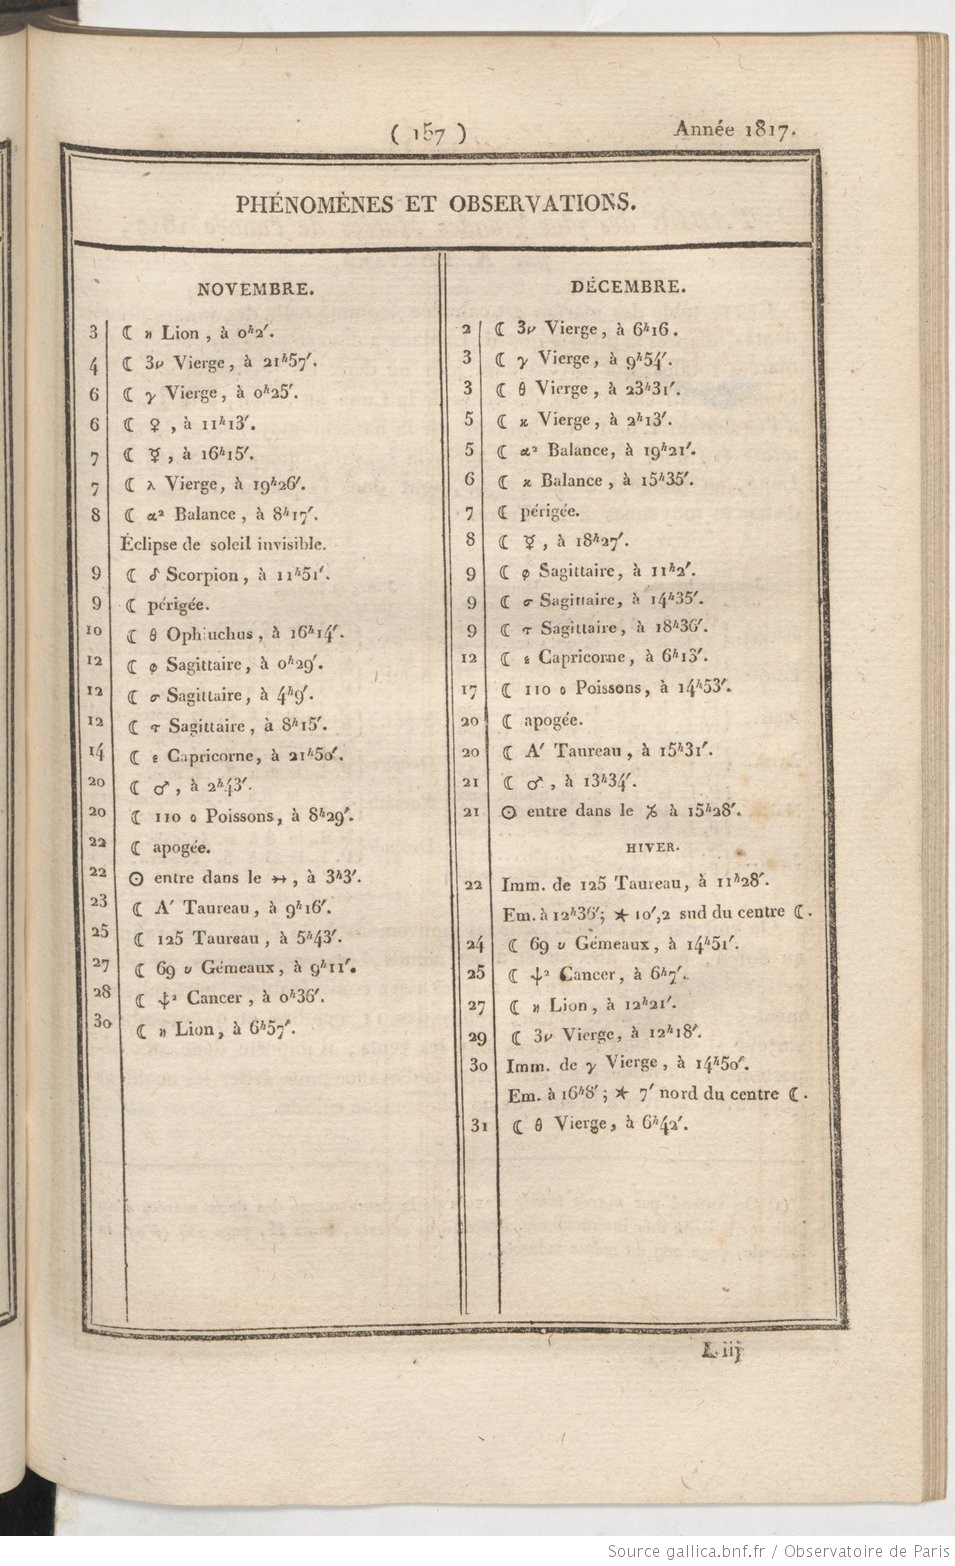 ( 157 )
Année 1817.
PHÉNOMÈNES ET OBSERVATIONS.
NOVEMBRE.
3 ☾ н Lion, à 0ʰ2′.
4 ☾ 3ν Vierge, à 21ʰ57′.
6 ☾ γ Vierge, à 0ʰ25′.
6 ☾ ♀, à 11ʰ13′.
7 ☾ ☿, à 16ʰ15′.
7 ☾ λ Vierge, à 19ʰ26′.
8 ☾ α² Balance, à 8ʰ17′.
Éclipse de soleil invisible.
9 ☾ δ Scorpion, à 11ʰ51′.
9 ☾ périgée.
10 ☾ θ Ophiuchus, à 16ʰ14′.
12 ☾ φ Sagittaire, à 0ʰ29′.
12 ☾ σ Sagittaire, à 4ʰ9′.
12 ☾ τ Sagittaire, à 8ʰ15′.
14 ☾ ε Capricorne, à 21ʰ50′.
20 ☾ ♂, à 2ʰ43′.
20 ☾ 110 ο Poissons, à 8ʰ29′.
22 ☾ apogée.
22 ☉ entre dans le ➳, à 3ʰ3′.
23 ☾ A′ Taureau, à 9ʰ16′.
25 ☾ 125 Taureau, à 5ʰ43′.
27 ☾ 69 υ Gémeaux, à 9ʰ11′.
28 ☾ ψ² Cancer, à 0ʰ36′.
30 ☾ н Lion, à 6ʰ57′.
DÉCEMBRE.
2 ☾ 3ν Vierge, à 6ʰ16.
3 ☾ γ Vierge, à 9ʰ54′.
3 ☾ θ Vierge, à 23ʰ31′.
5 ☾ ϰ Vierge, à 2ʰ13′.
5 ☾ α² Balance, à 19ʰ21′.
6 ☾ ϰ Balance, à 15ʰ35′.
7 ☾ périgée.
8 ☾ ☿, à 18ʰ27′.
9 ☾ φ Sagittaire, à 11ʰ2′.
9 ☾ σ Sagittaire, à 14ʰ35′.
9 ☾ τ Sagittaire, à 18ʰ36′.
12 ☾ ε Capricorne, à 6ʰ13′.
17 ☾ 110 ο Poissons, à 14ʰ53′.
20 ☾ apogée.
20 ☾ A′ Taureau, à 15ʰ31′.
21 ☾ ♂, à 13ʰ34′.
21 ☉ entre dans le ♑ à 15ʰ28′.
HIVER.
22 Imm. de 125 Taureau, à 11ʰ28′.
Em. à 12ʰ36′; ★ 10′,2 sud du centre ☾.
24 ☾ 69 υ Gémeaux, à 14ʰ51′.
25 ☾ ψ² Cancer, à 6ʰ7′.
27 ☾ н Lion, à 12ʰ21′.
29 ☾ 3ν Vierge, à 12ʰ18′.
30 Imm. de γ Vierge, à 14ʰ50′.
Em. à 16ʰ8′; ★ 7′ nord du centre ☾.
31 ☾ θ Vierge, à 6ʰ42′.
L iij
Source gallica.bnf.fr / Observatoire de Paris